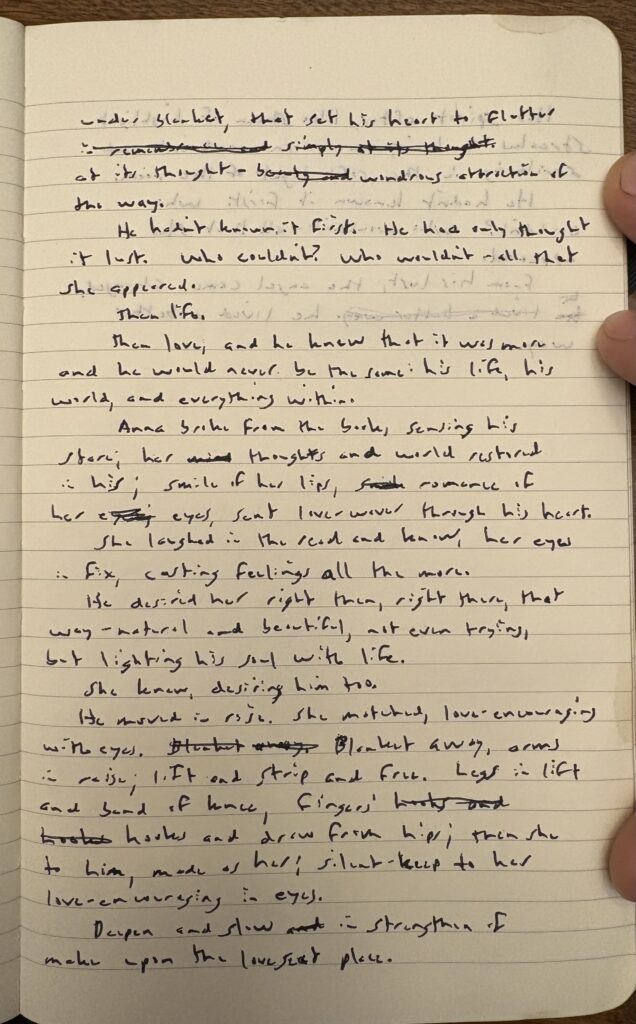 under blanket, that set his heart to flutter
in remembrance and simply at its thought.
at its thought - beauty and wondrous attraction of
the way.
He hadn't known it first. He had only thought
it lust. Who couldn't? Who wouldn't - all that
she appeared.
Then life.
Then love, and he knew that it was more
and he would never be the same: his life, his
world, and everything within.
Anna broke from the book, sensing his
stare; her mind thoughts and world restored
in his; smile of her lips, romance of
her eyes, sent love-waves through his heart.
She laughed in the read and know, her eyes
in fix, casting feelings all the more.
He desired her right then, right there, that
way - natural and beautiful, not even trying,
but lighting his soul with life.
She knew, desiring him too.
He moved in rise. She matched, love-encouraging
with eyes. Blanket away. Blanket away, arms
in raise; lift and strip and free. Legs in lift
and bend of knee, fingers' hooks and
hooks hooks and draw from hips; then she
to him, made as her; silent-keep to her
love-encouraging in eyes.
Deepen and slow and in strengthen of
make upon the loveseat place.